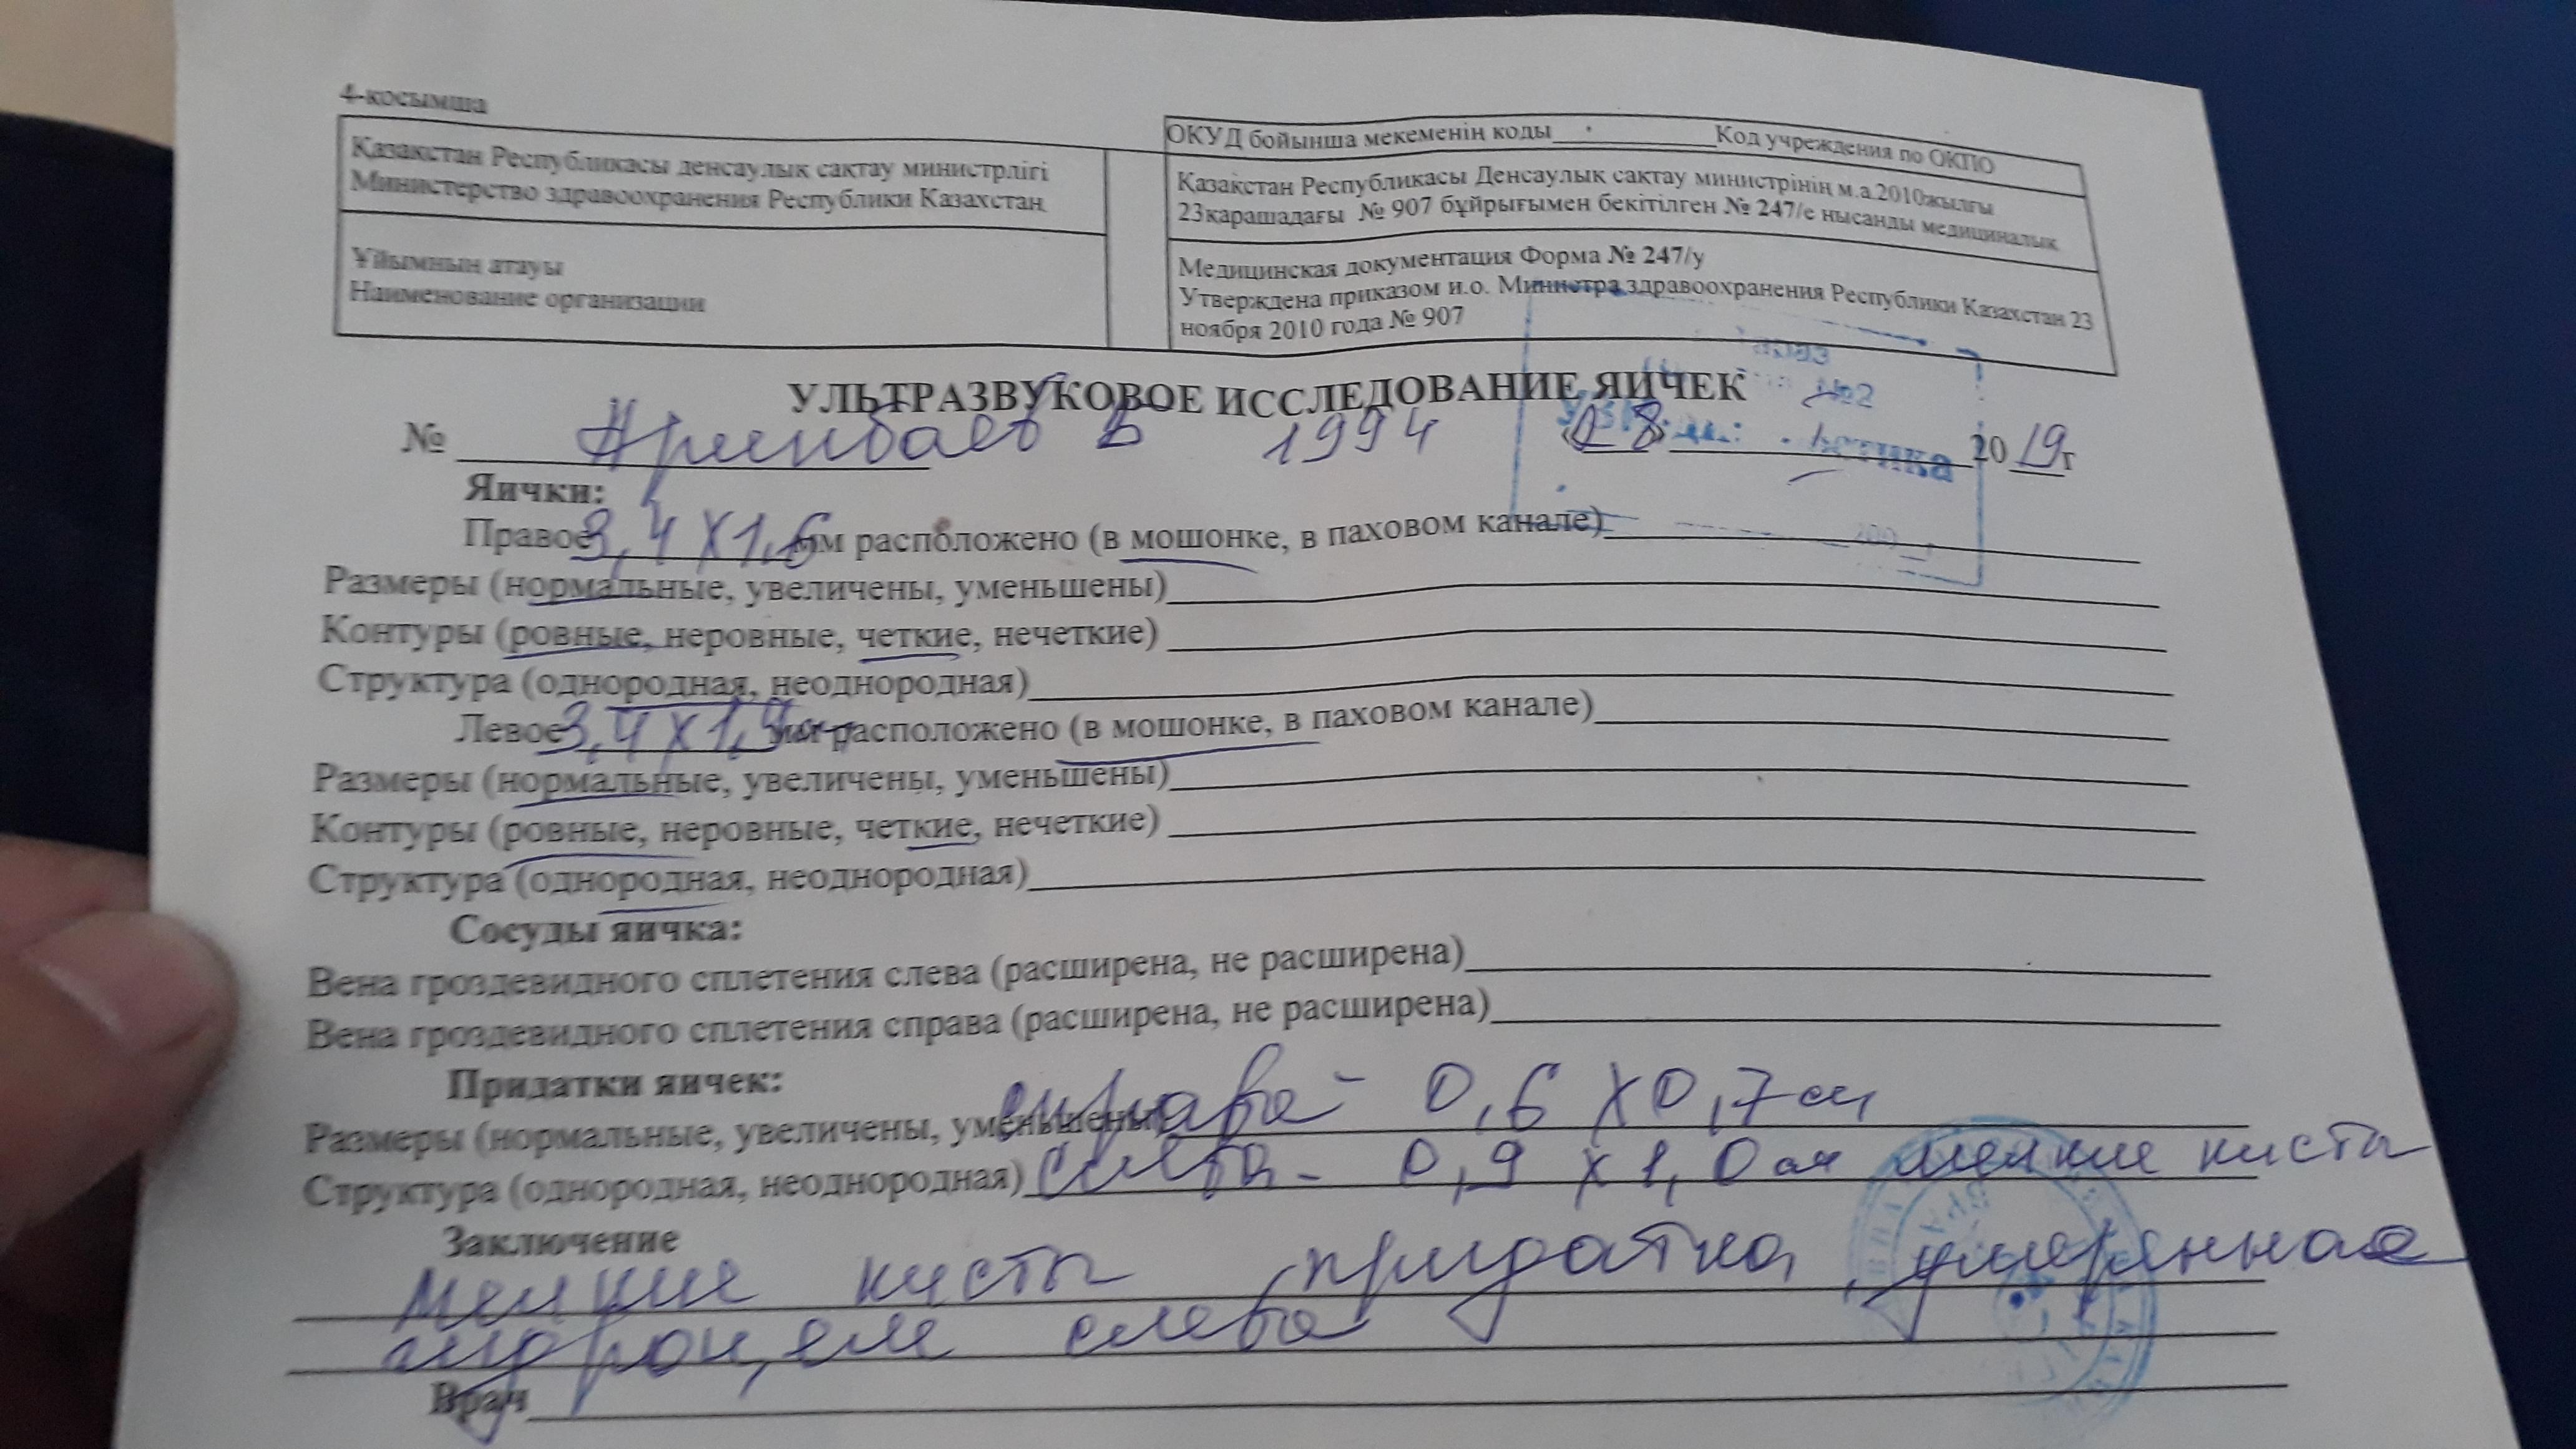 4-косымша
Қазақстан Республикасы денсаулық сақтау министрлігі
Министерство здравоохранения Республики Казахстан
Ұйымнын атауы
Наименование организации
ОКУД бойынша мекеменің коды____________Код учреждения по ОКПО
Қазақстан Республикасы Денсаулық сақтау министрінің м.а.2010жылғы
23қарашадағы № 907 бұйрығымен бекітілген № 247/е нысанды медициналық
Медицинская документация Форма № 247/у
Утверждена приказом и.о. Министра здравоохранения Республики Казахстан 23
ноября 2010 года № 907
УЛЬТРАЗВУКОВОЕ ИССЛЕДОВАНИЕ ЯИЧЕК
№ Б 1994 2019г
№2
Яички:
Правое 3,4 х 1,6 мм расположено (в мошонке, в паховом канале)
Размеры (нормальные, увеличены, уменьшены)
Контуры (ровные, неровные, четкие, нечеткие)
Структура (однородная, неоднородная)
Левое 3,4 х 1,9 расположено (в мошонке, в паховом канале)
Размеры (нормальные, увеличены, уменьшены)
Контуры (ровные, неровные, четкие, нечеткие)
Структура (однородная, неоднородная)
Сосуды яичка:
Вена гроздевидного сплетения слева (расширена, не расширена)
Вена гроздевидного сплетения справа (расширена, не расширена)
Придатки яичек:
Размеры (нормальные, увеличены, уменьшены) справа - 0,6 х 0,7 см
Структура (однородная, неоднородная) слева - 0,9 х 1,0 см мелкие кисты
Заключение
Мелкие кисты придатка, умеренное
гидроцеле слева
Врач